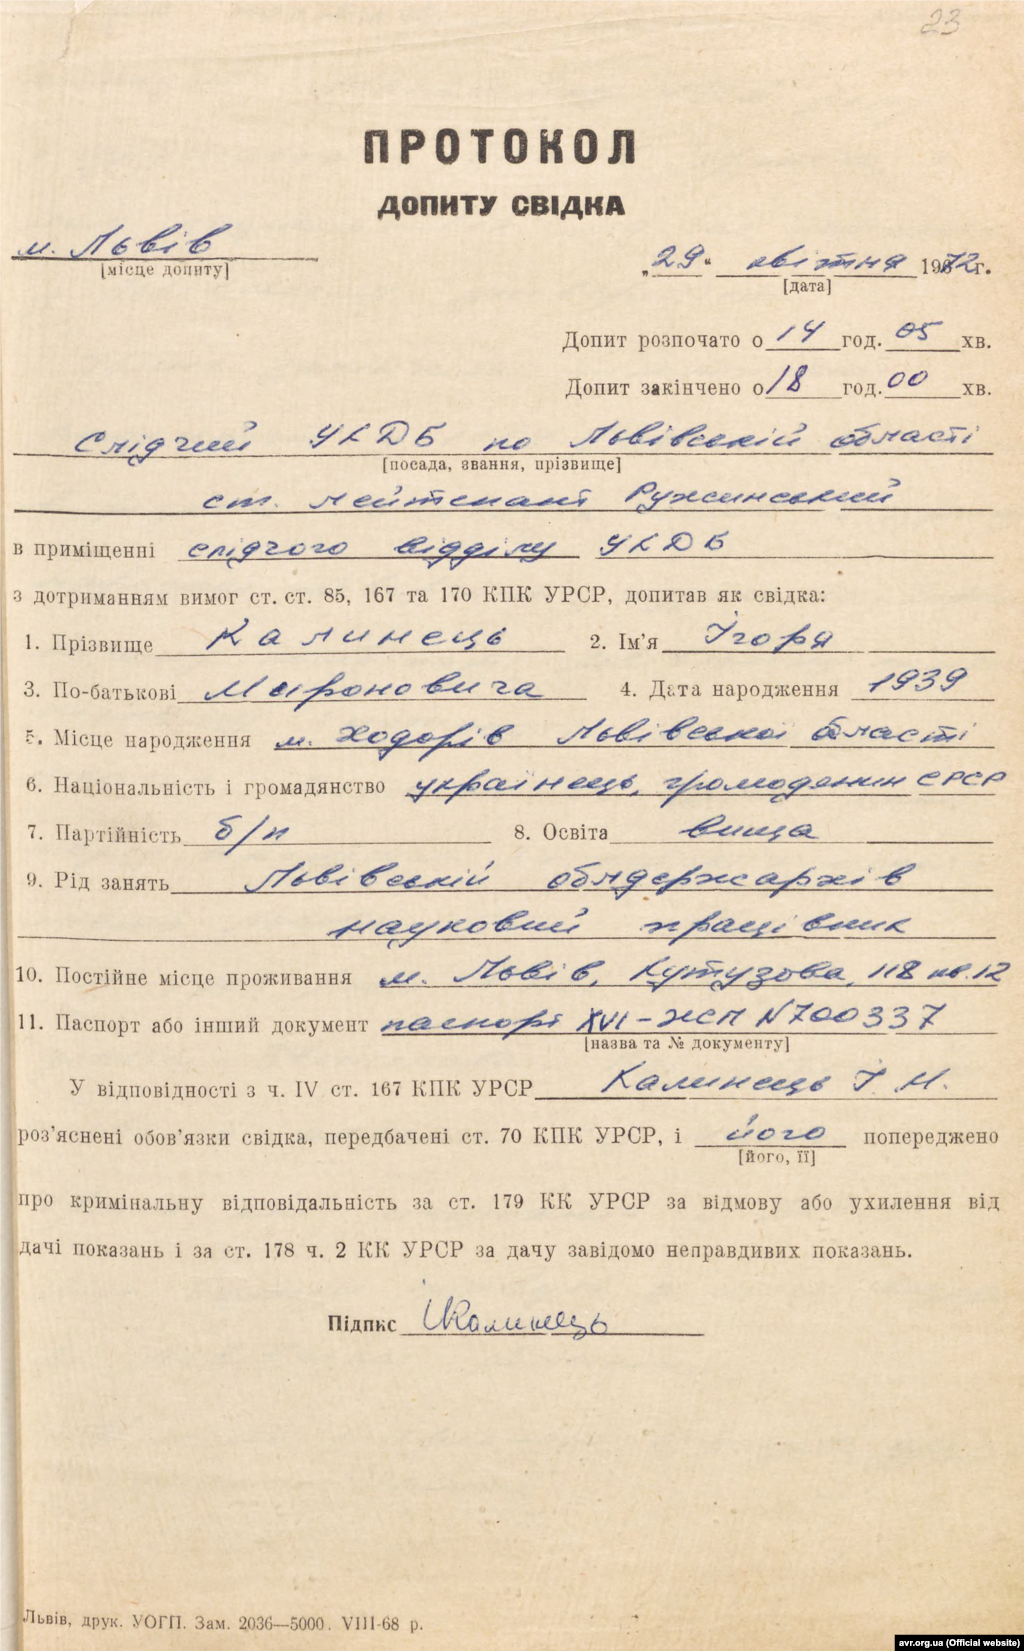 23
ПРОТОКОЛ
ДОПИТУ СВІДКА
м. Львів
[місце допиту]
„29“ квітня 1972г.
[дата]
Допит розпочато о 14 год. 05 хв.
Допит закінчено о 18 год. 00 хв.
Слідчий УКДБ по Львівській області
[посада, звання, прізвище]
ст. лейтенант Ружинський
в приміщенні слідчого відділу УКДБ
з дотриманням вимог ст. ст. 85, 167 та 170 КПК УРСР, допитав як свідка:
1. Прізвище Калинець 2. Ім'я Ігоря
3. По-батькові Мироновича 4. Дата народження 1939
5. Місце народження м. Ходорів Львівської області
6. Національність і громадянство українець, громадянин СРСР
7. Партійність б/п 8. Освіта вища
9. Рід занять Львівський облдержархів
науковий працівник
10. Постійне місце проживання м. Львів, Кутузова, 118 кв. 12
11. Паспорт або інший документ паспорт XVI-ЖСП №700337
[назва та № документу]
У відповідності з ч. IV ст. 167 КПК УРСР Калинець І. М.
роз'яснені обов'язки свідка, передбачені ст. 70 КПК УРСР, і його попереджено
[його, її]
про кримінальну відповідальність за ст. 179 КК УРСР за відмову або ухилення від
дачі показань і за ст. 178 ч. 2 КК УРСР за дачу завідомо неправдивих показань.
Підпис ІКалинець
Львів, друк. УОГП. Зам. 2036—5000. VIII-68 р.
avr.org.ua (Official website)